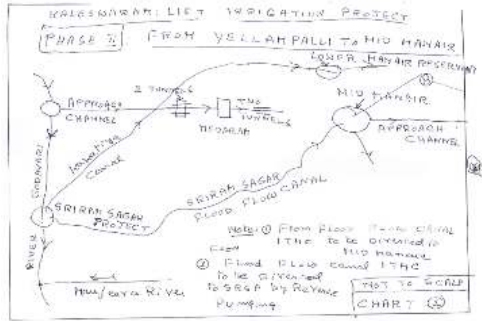 KALESWARAM: LIFT IRRIGATION PROJECT
PHASE II FROM YELLAMPALLI TO MID MANAIR
LOWER MANAIR RESERVOIR
2 TUNNELS
APPROACH
CHANNEL
TWO
TUNNELS
MEDARAM
MID MANAIR
APPROACH
CHANNEL
Canal
GODAVARI
RIVER
SRIRAM SAGAR
PROJECT
SRIRAM SAGAR
FLOOD FLOW CANAL
Note: ① From Flood Flow Canal
1 TMC to be diverted to
MID Manair
② Flood Flow canal 1 TMC
to be diverted
to SRSP by Reverse
Pumping.
River
NOT TO SCALE
CHART